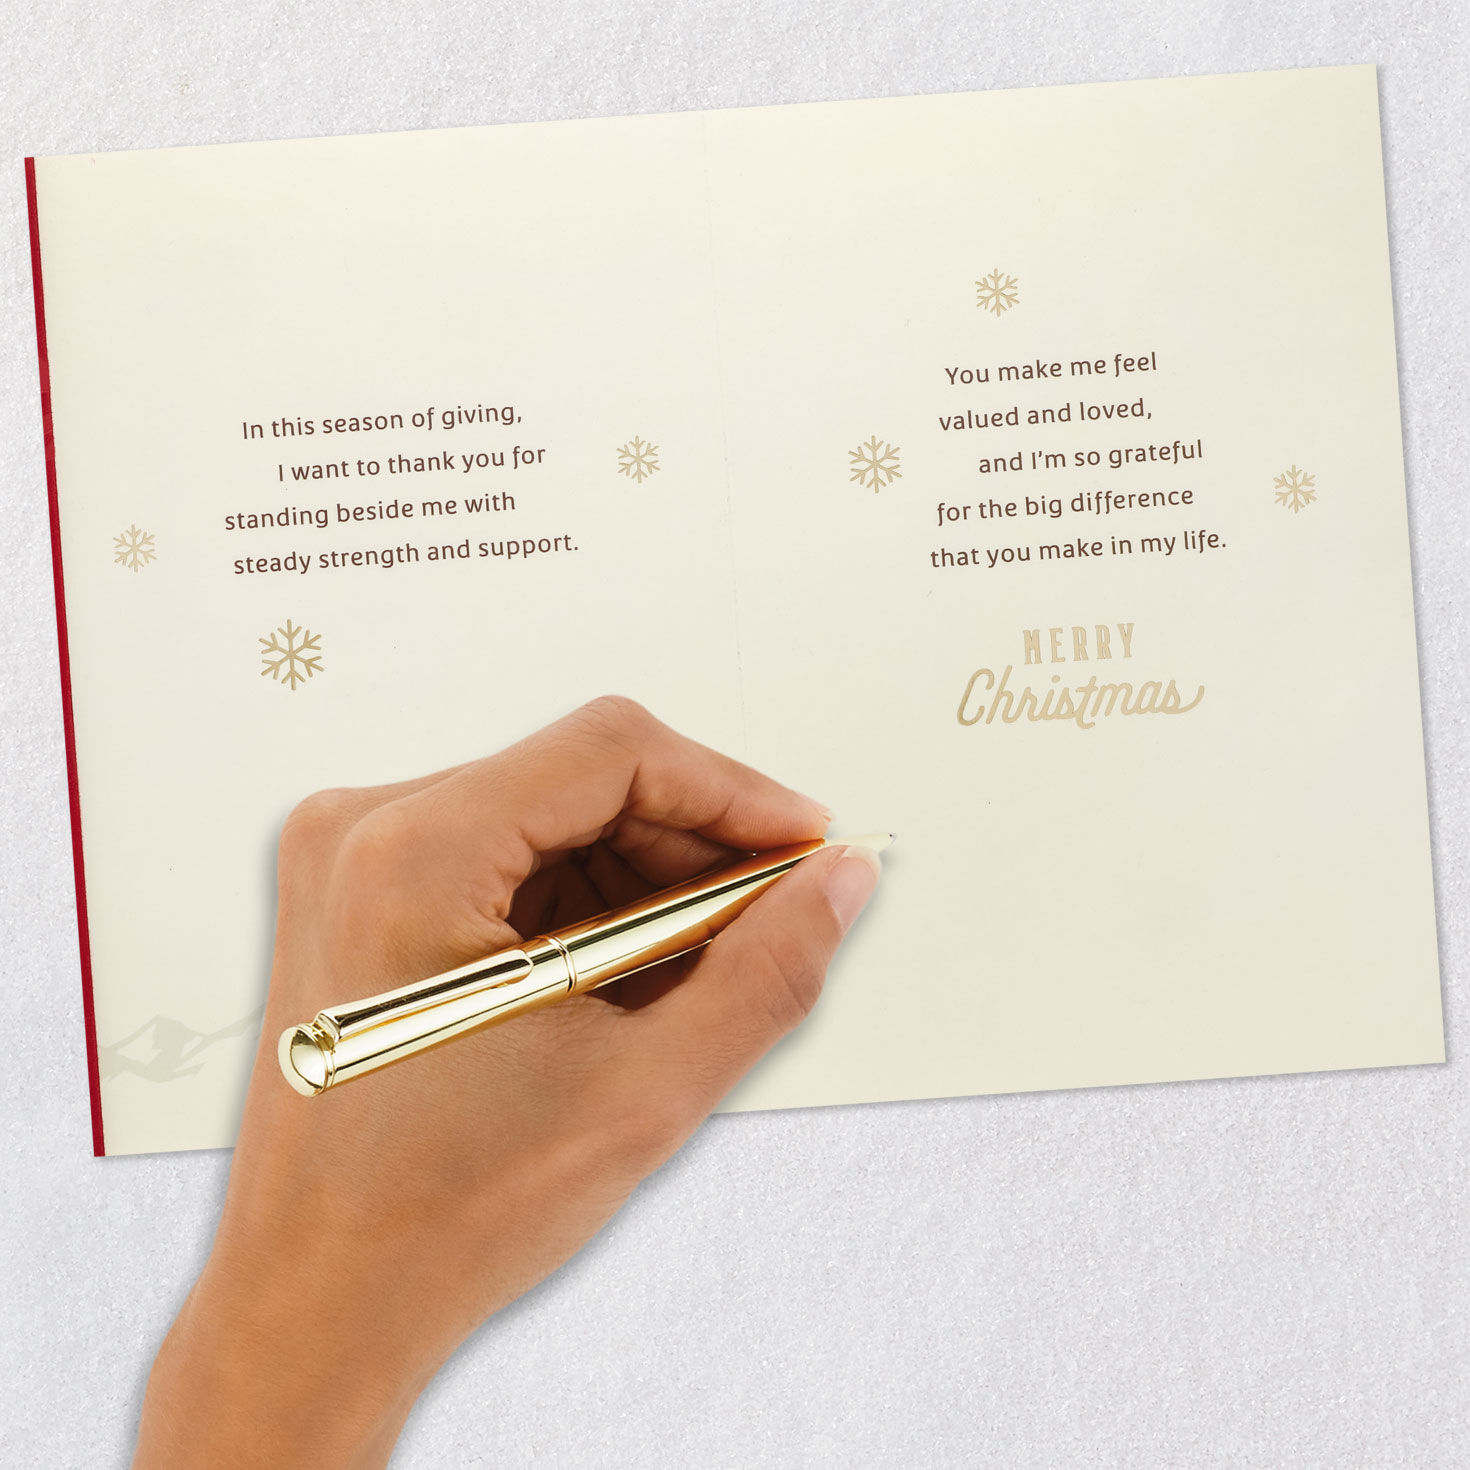 In this season of giving,
I want to thank you for
standing beside me with
steady strength and support.
You make me feel
valued and loved,
and I'm so grateful
for the big difference
that you make in my life.
MERRY
Christmas